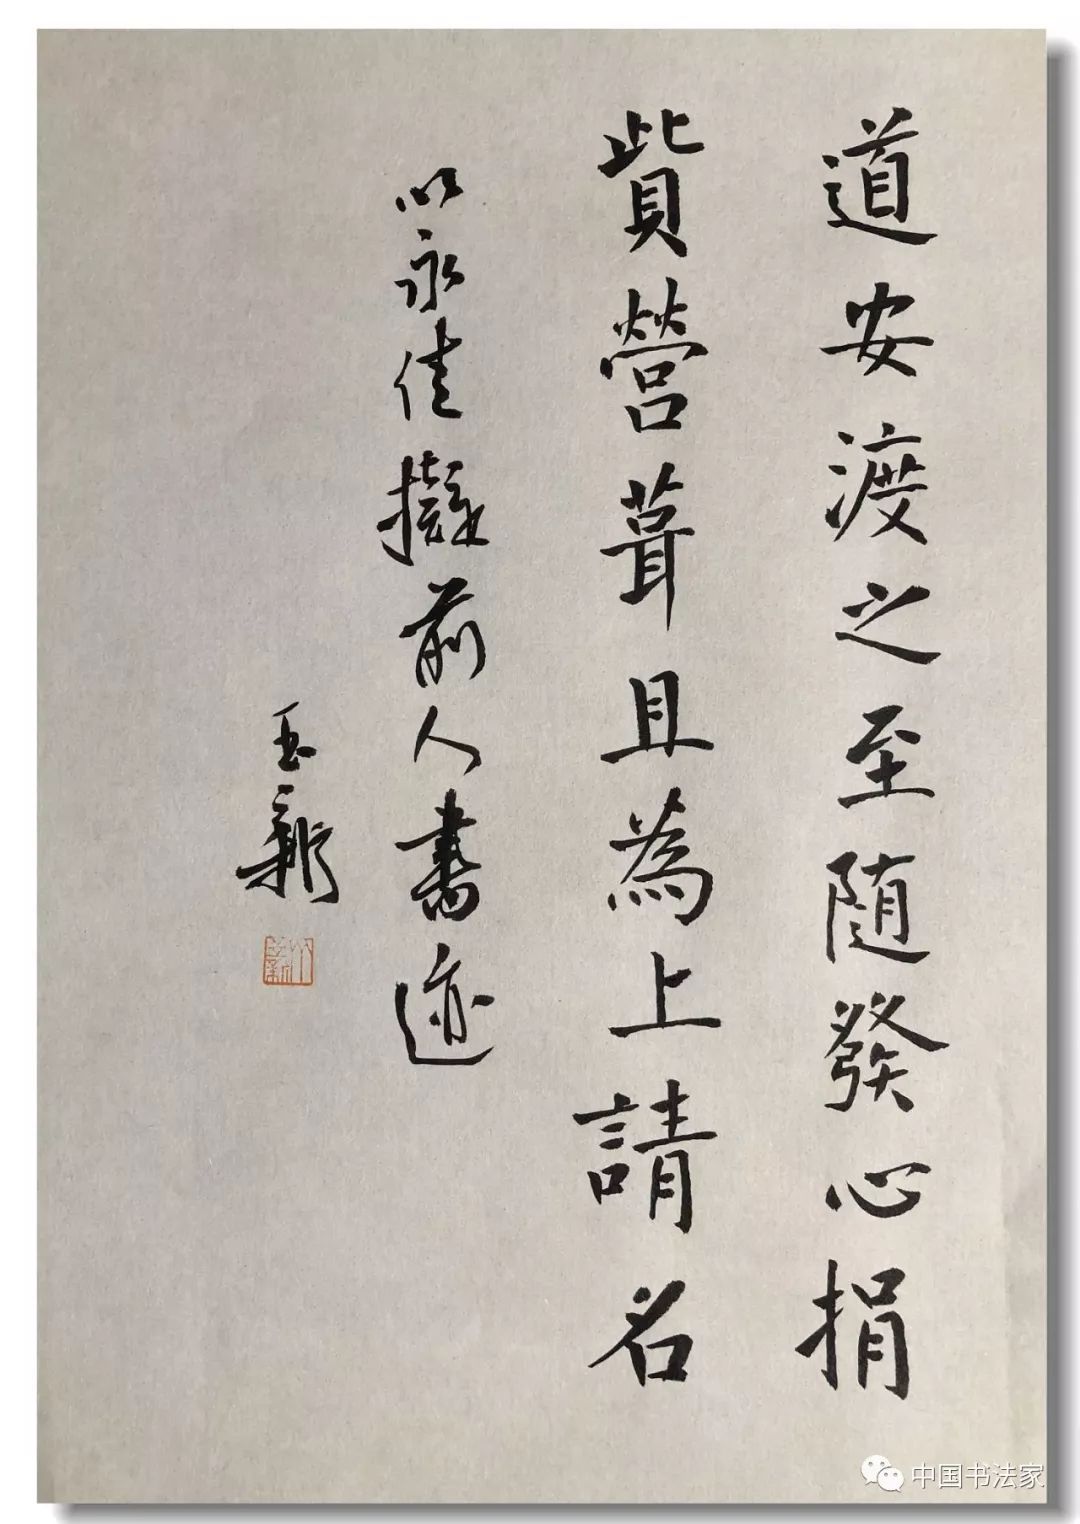 道安渡之至随發心捐
貲營葺且為上請名
以永佳擬前人書迹
玉新
中国书法家